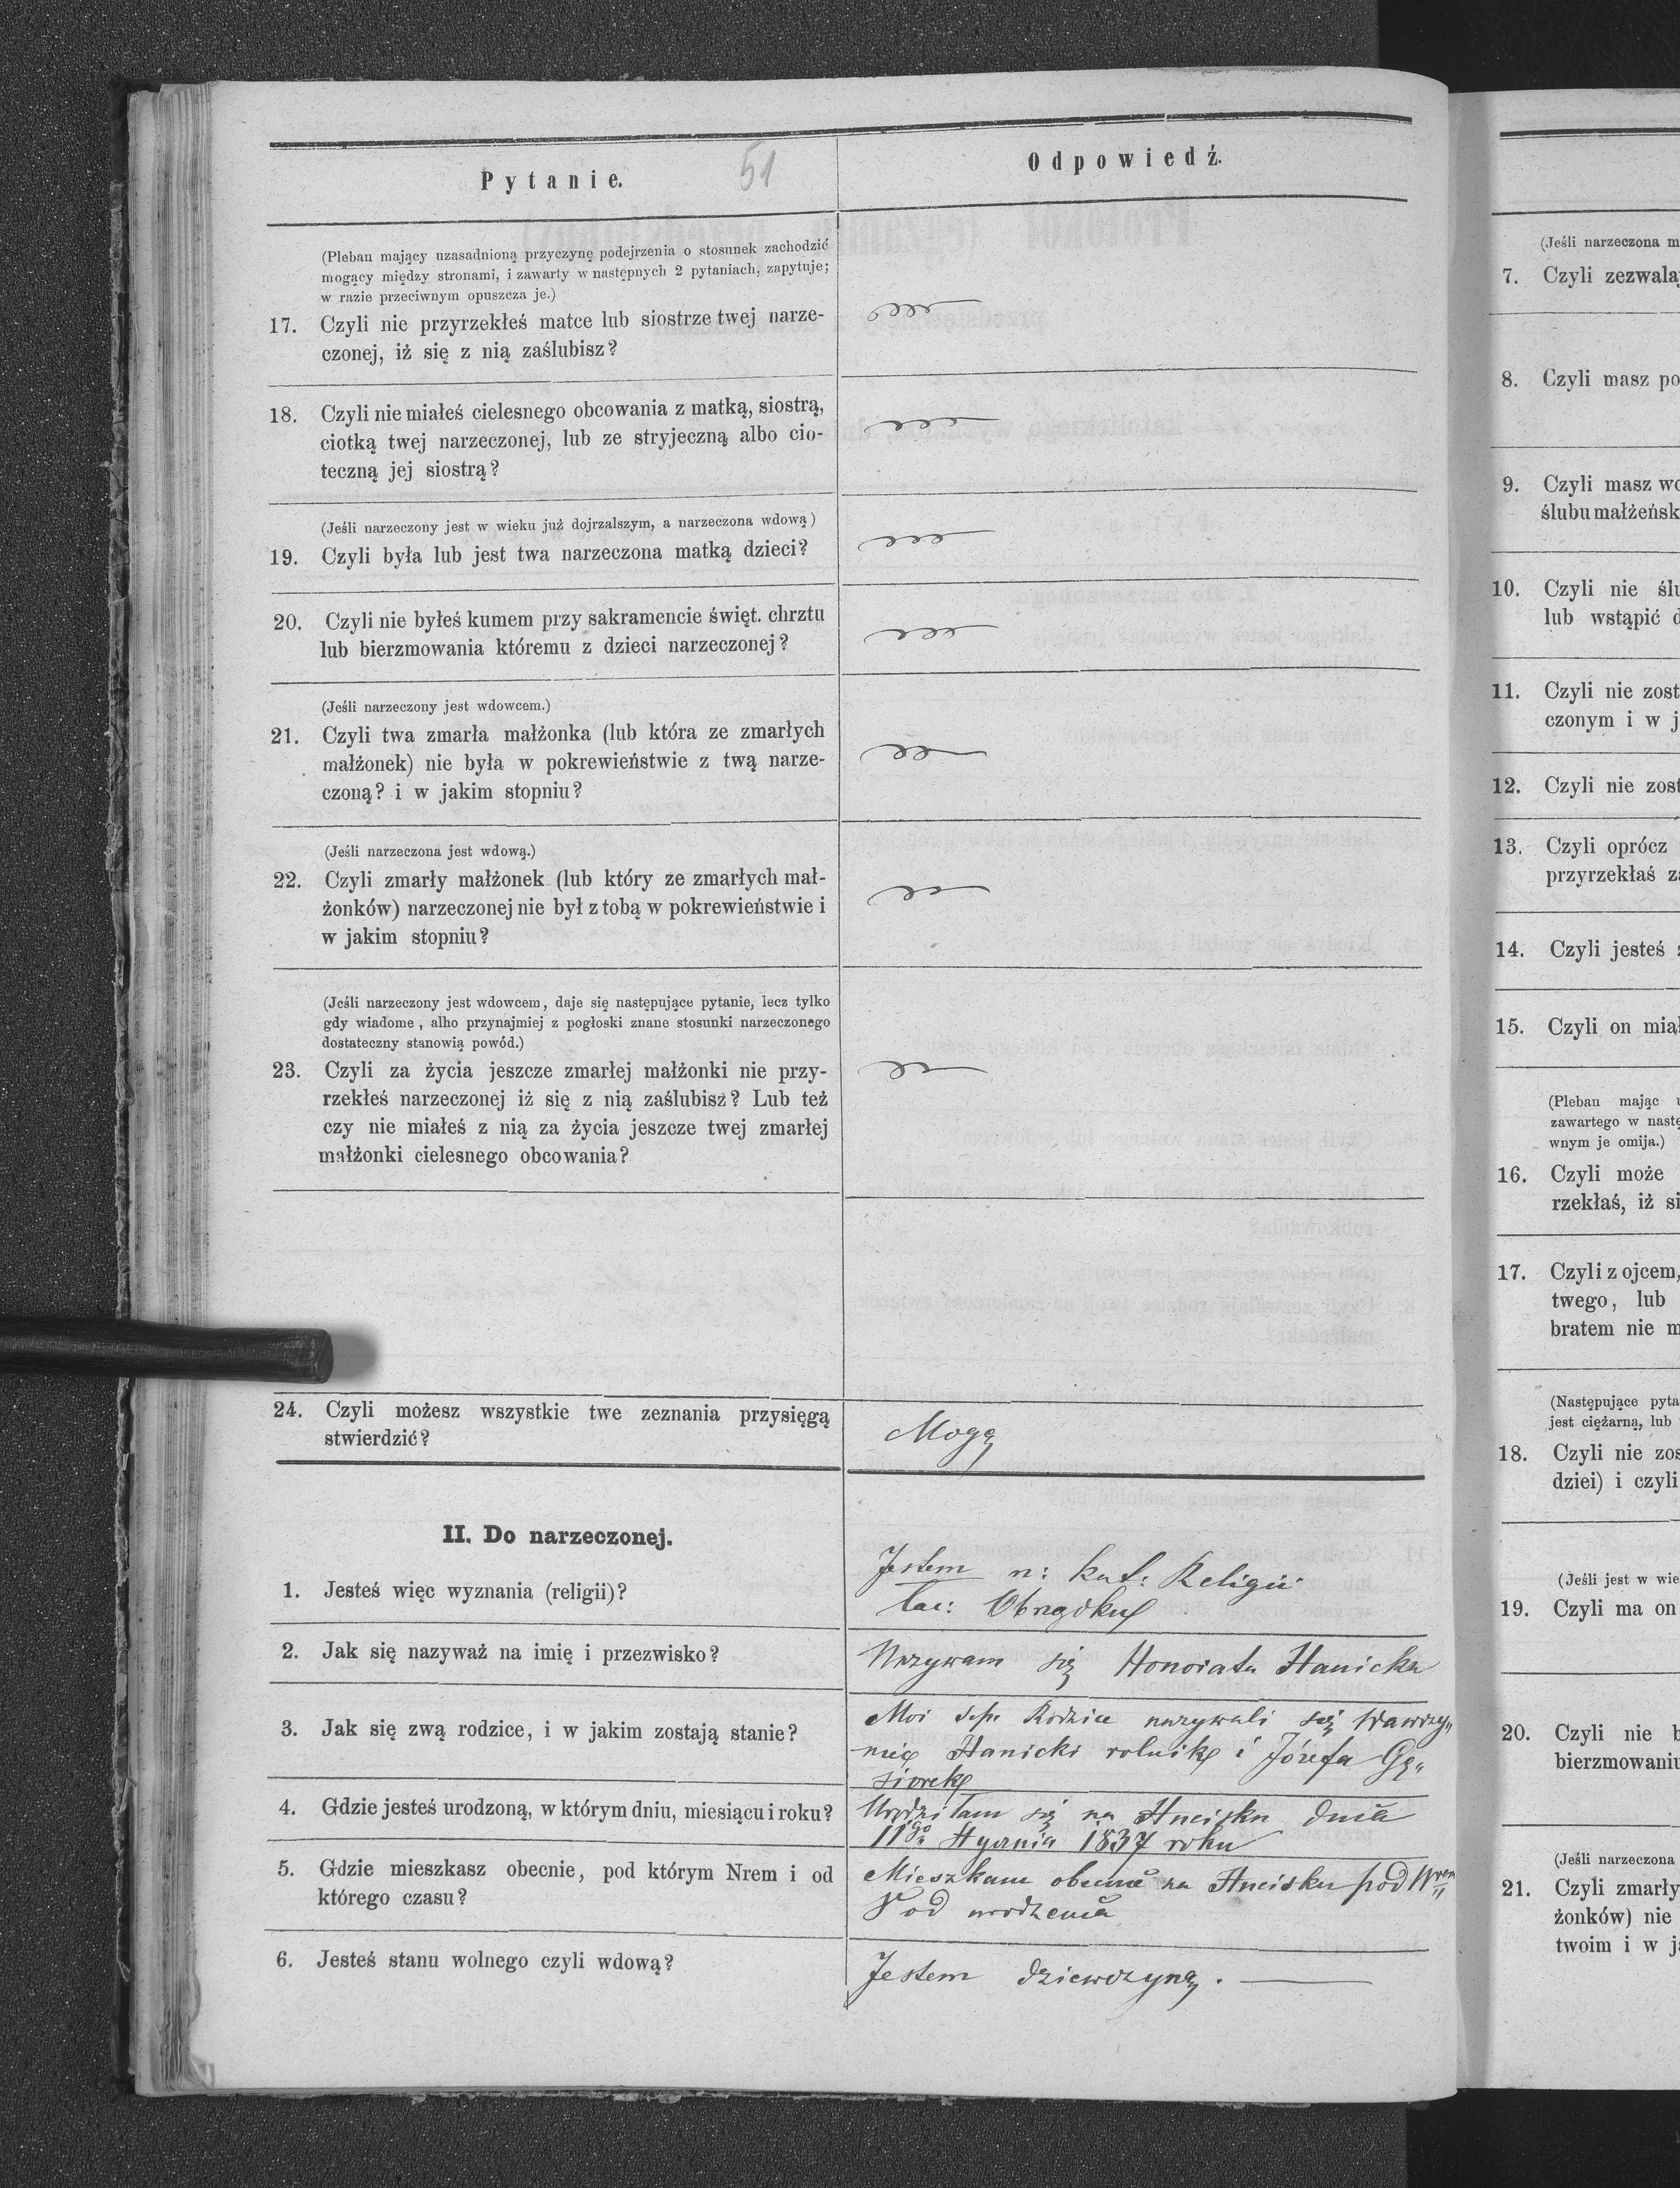 Pytanie.
51
Odpowiedź.
(Pleban mający uzasadnioną przyczynę podejrzenia o stosunek zachodzić
mogący między stronami, i zawarty w następnych 2 pytaniach, zapytuje;
w razie przeciwnym opuszcza je.)
17. Czyli nie przyrzekłeś matce lub siostrze twej narze-
czonej, iż się z nią zaślubisz?
18. Czyli nie miałeś cielesnego obcowania z matką, siostrą,
ciotką twej narzeczonej, lub ze stryjeczną albo cio-
teczną jej siostrą?
(Jeśli narzeczony jest w wieku już dojrzalszym, a narzeczona wdową)
19. Czyli była lub jest twa narzeczona matką dzieci?
20. Czyli nie byłeś kumem przy sakramencie święt. chrztu
lub bierzmowania któremu z dzieci narzeczonej?
(Jeśli narzeczony jest wdowcem.)
21. Czyli twa zmarła małżonka (lub która ze zmarłych
małżonek) nie była w pokrewieństwie z twą narze-
czoną? i w jakim stopniu?
(Jeśli narzeczona jest wdową.)
22. Czyli zmarły małżonek (lub który ze zmarłych mał-
żonków) narzeczonej nie był z tobą w pokrewieństwie i
w jakim stopniu?
(Jeśli narzeczony jest wdowcem, daje się następujące pytanie, lecz tylko
gdy wiadome, alho przynajmiej z pogłoski znane stosunki narzeczonego
dostateczny stanowią powód.)
23. Czyli za życia jeszcze zmarłej małżonki nie przy-
rzekłeś narzeczonej iż się z nią zaślubisz? Lub też
czy nie miałeś z nią za życia jeszcze twej zmarłej
małżonki cielesnego obcowania?
24. Czyli możesz wszystkie twe zeznania przysięgą
stwierdzić?
Mogę
II. Do narzeczonej.
1. Jesteś więc wyznania (religii)?
Jestem n: kat: Religii
łac: Obrządku
2. Jak się nazyważ na imię i przezwisko?
Nazywam się Honorata Hanicka
3. Jak się zwą rodzice, i w jakim zostają stanie?
Moi s.p. Rodzice nazywali się Wawrzy„
niec Hanicki rolnik i Józefa Gą„
siorek
4. Gdzie jesteś urodzoną, w którym dniu, miesiącu i roku?
Urodziłam się na dnia
11go Stycznia 1837 roku
5. Gdzie mieszkasz obecnie, pod którym Nrem i od
którego czasu?
Mieszkam obecnie na pod Nrem
od urodzenia
6. Jesteś stanu wolnego czyli wdową?
Jestem dziewczyną.
(Jeśli narzeczona m
7. Czyli zezwala
8. Czyli masz po
9. Czyli masz wo
ślubu małżeńsk
10. Czyli nie ślu
lub wstąpić d
11. Czyli nie zost
czonym i w j
12. Czyli nie zost
13. Czyli oprócz
przyrzekłaś za
14. Czyli jesteś
15. Czyli on miał
(Pleban mając u
zawartego w nastę
wnym je omija.)
16. Czyli może
rzekłaś, iż si
17. Czyli z ojcem,
twego, lub
bratem nie m
(Następujące pyta
jest ciężarną, lub
18. Czyli nie zos
dziei) i czyli
(Jeśli jest w wie
19. Czyli ma on
20. Czyli nie b
bierzmowaniu
(Jeśli narzeczona
21. Czyli zmarły
żonków) nie
twoim i w ja